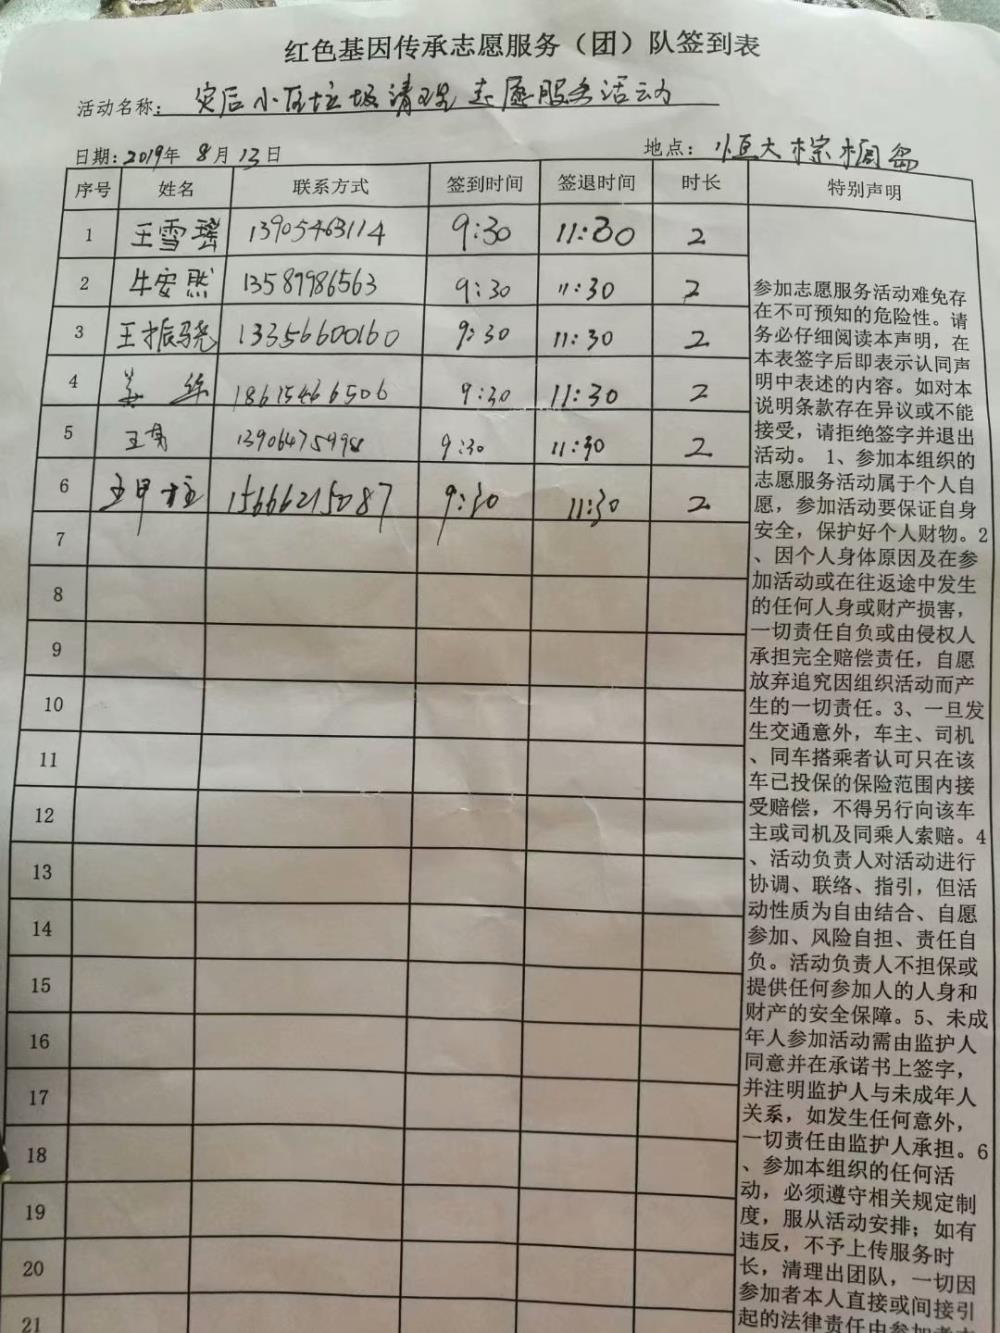 红色基因传承志愿服务（团）队签到表
活动名称：灾后小区垃圾清理志愿服务活动
日期：2019年8月13日 地点：恒大棕榈岛
序号 姓名 联系方式 签到时间 签退时间 时长 特别声明
1 王雪瑶 13905463114 9:30 11:30 2
2 牛安然 13589986563 9:30 11:30 2
3 王振骁 13356600160 9:30 11:30 2
4 18615466506 9:30 11:30 2
5 9:30 11:30 2
6 王甲柱 15666215087 9:30 11:30 2
7
8
9
10
11
12
13
14
15
16
17
18
19
20
21
参加志愿服务活动难免存
在不可预知的危险性。请
务必仔细阅读本声明，在
本表签字后即表示认同声
明中表述的内容。如对本
说明条款存在异议或不能
接受，请拒绝签字并退出
活动。 1、参加本组织的
志愿服务活动属于个人自
愿，参加活动要保证自身
安全，保护好个人财物。2
、因个人身体原因及在参
加活动或在往返途中发生
的任何人身或财产损害，
一切责任自负或由侵权人
承担完全赔偿责任，自愿
放弃追究因组织活动而产
生的一切责任。3、一旦发
生交通意外，车主、司机
、同车搭乘者认可只在该
车已投保的保险范围内接
受赔偿，不得另行向该车
主或司机及同乘人索赔。4
、活动负责人对活动进行
协调、联络、指引，但活
动性质为自由结合、自愿
参加、风险自担、责任自
负。活动负责人不担保或
提供任何参加人的人身和
财产的安全保障。5、未成
年人参加活动需由监护人
同意并在承诺书上签字，
并注明监护人与未成年人
关系，如发生任何意外，
一切责任由监护人承担。6
、参加本组织的任何活
动，必须遵守相关规定制
度，服从活动安排；如有
违反，不予上传服务时
长，清理出团队，一切因
参加者本人直接或间接引
起的法律责任由参加者本